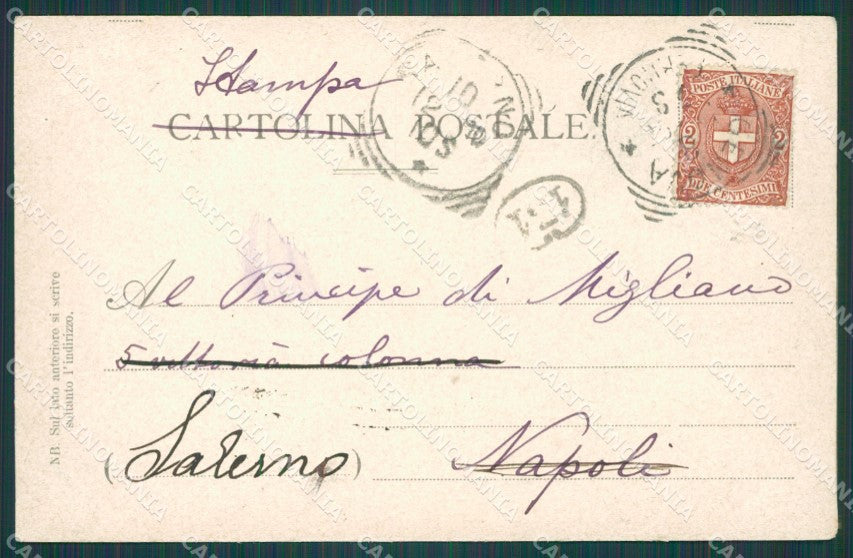 Stampa
CARTOLINA POSTALE
POSTE ITALIANE
2 2
DUE CENTESIMI
Al Principe di Migliano
5 vittoria colonna
(Salerno)
Napoli
NB. Sul lato anteriore si scrive
soltanto l'indirizzo.
CARTOLINOMANIA